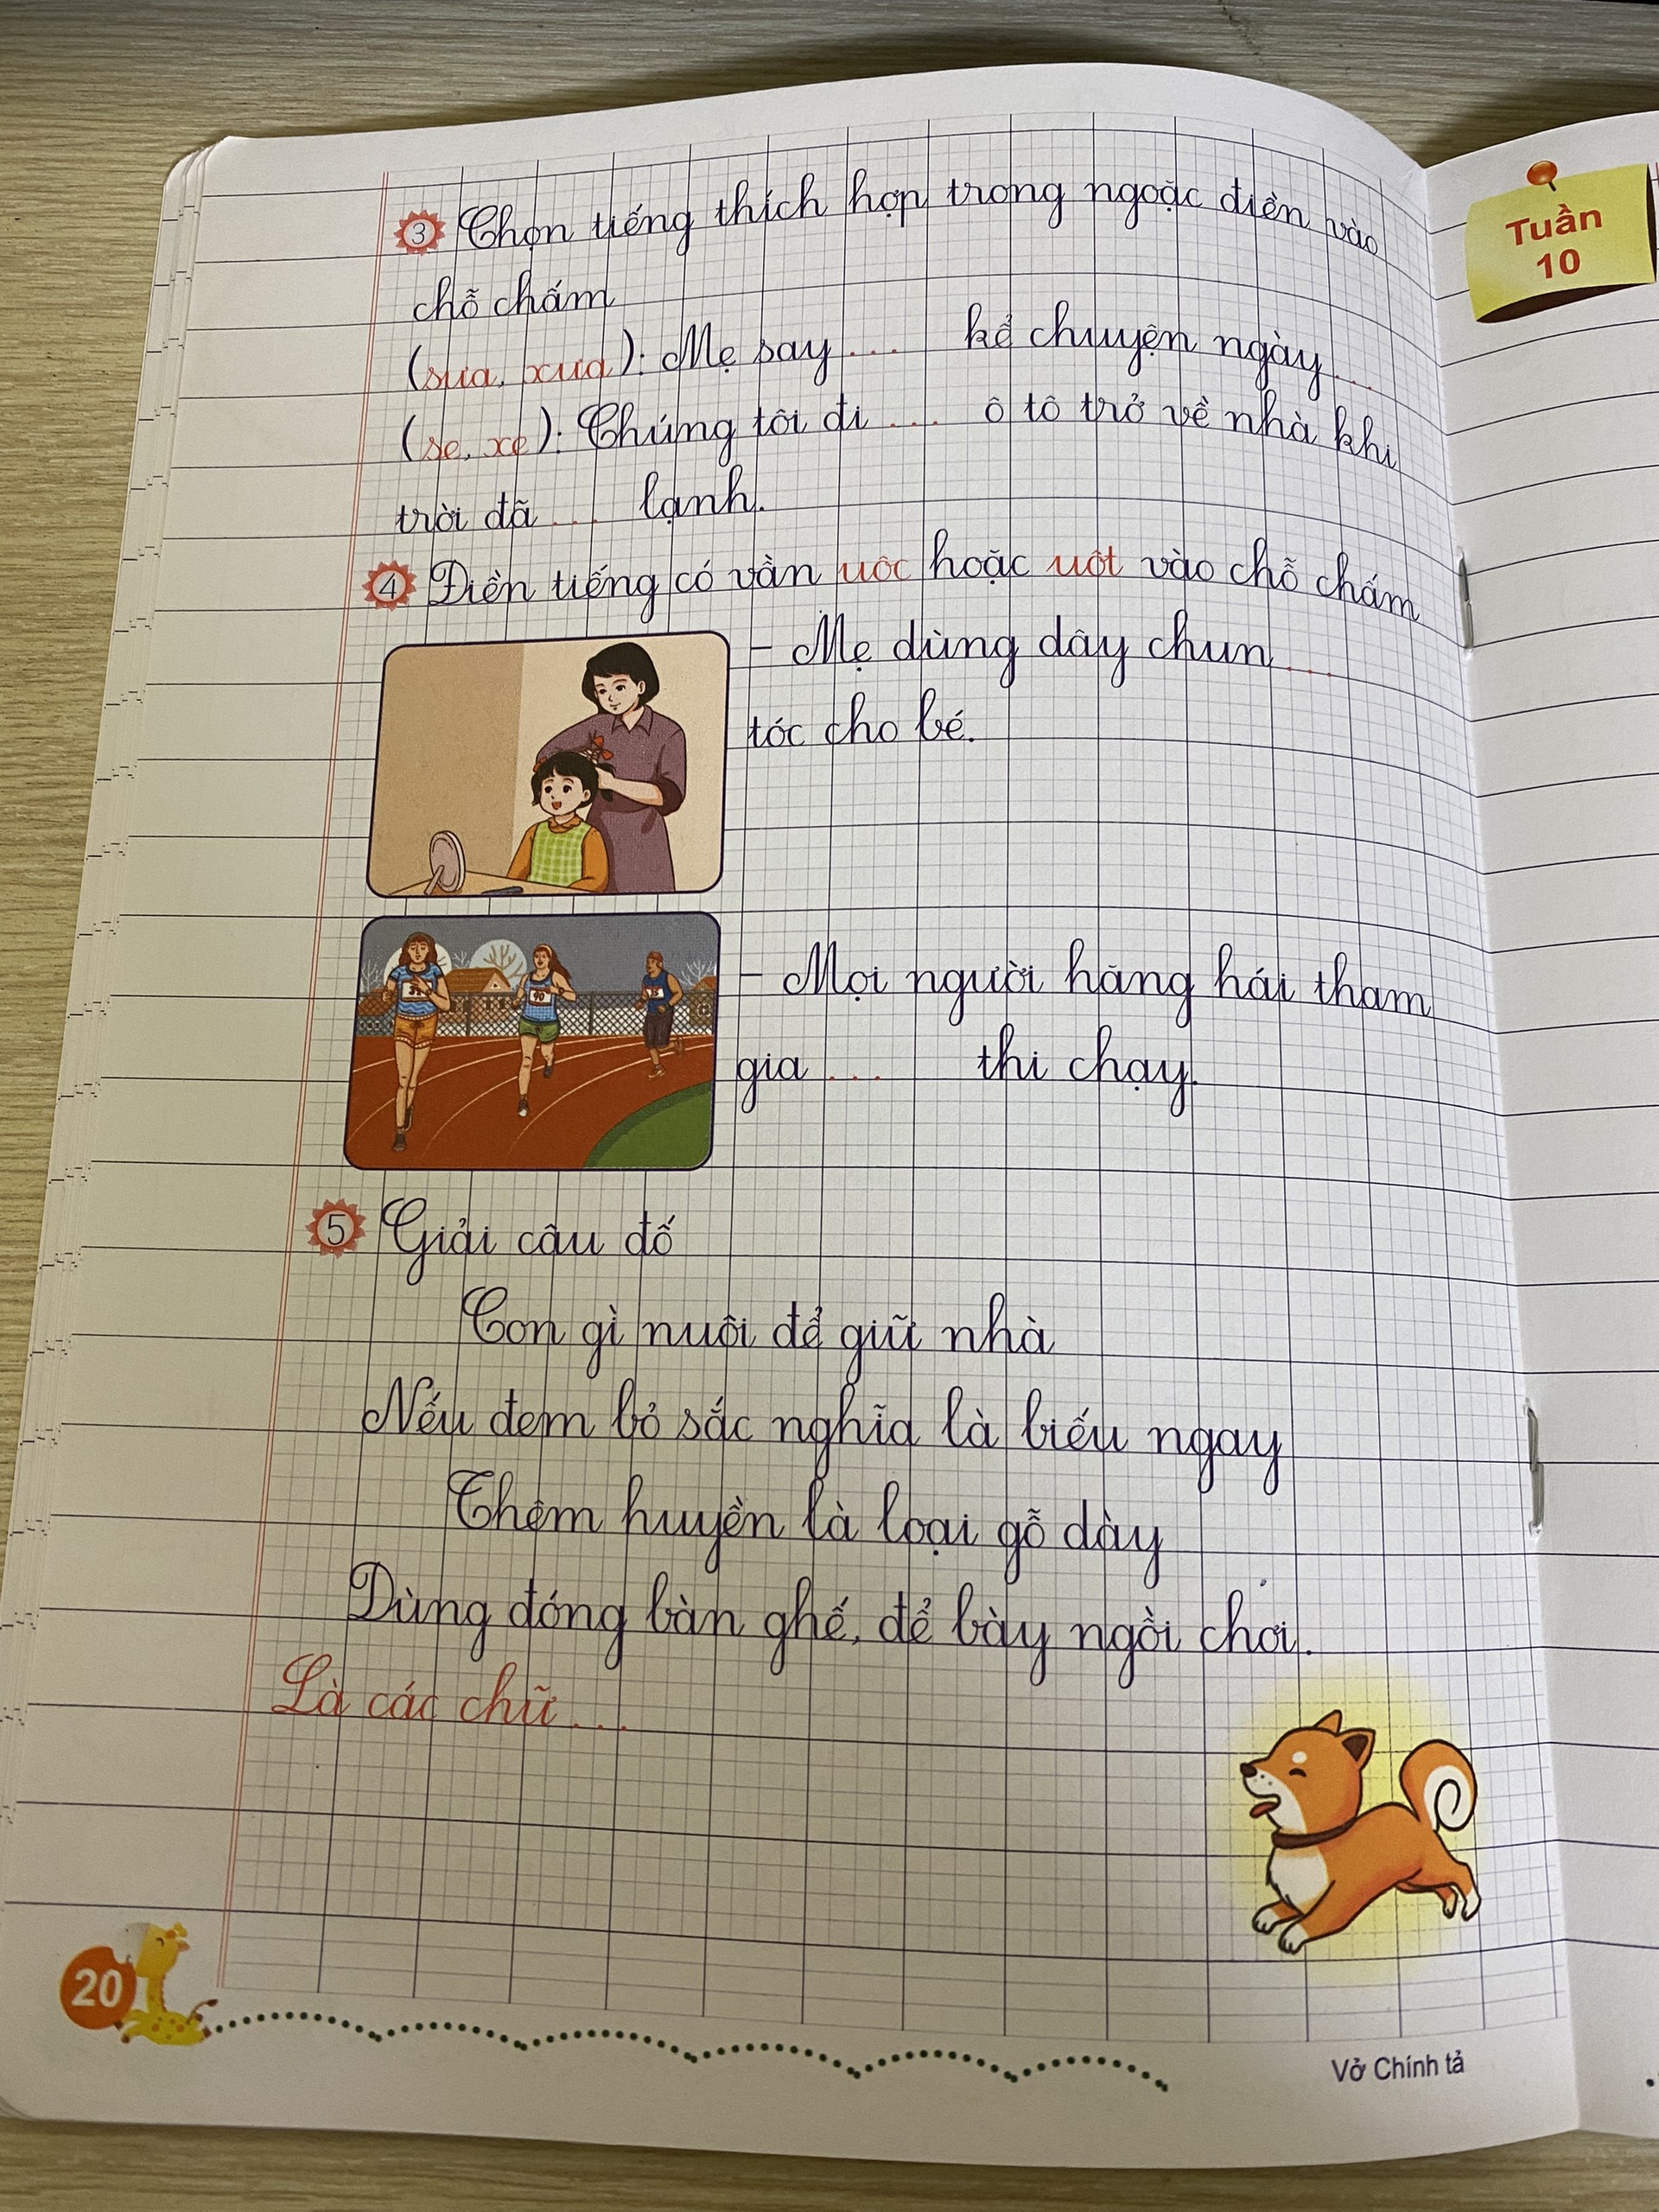 3 Chọn tiếng thích hợp trong ngoặc điền vào
chỗ chấm
(sưa, xưa): Mẹ say ... kể chuyện ngày ...
(se, xe): Chúng tôi đi ... ô tô trở về nhà khi
trời đã ... lạnh.
4 Điền tiếng có vần uôc hoặc uôt vào chỗ chấm
- Mẹ dùng dây chun ...
tóc cho bé.
- Mọi người hăng hái tham
gia ... thi chạy.
5 Giải câu đố
Con gì nuôi để giữ nhà
Nếu đem bỏ sắc nghĩa là biếu ngay
Thêm huyền là loại gỗ dày
Dùng đóng bàn ghế, để bày ngồi chơi.
Là các chữ ...
20
Vở Chính tả
Tuần
10